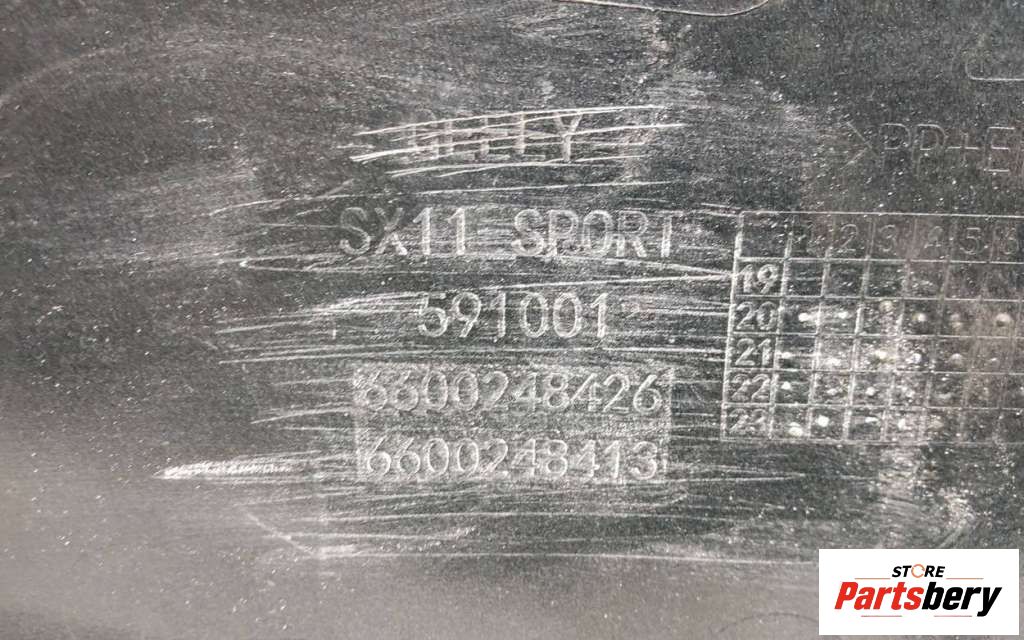 GEELY
>PP+E
SX11 SPORT
1 2 3 4 5 6
19
591001
20
21
6600248426
22
23
6600248413
STORE
Partsbery